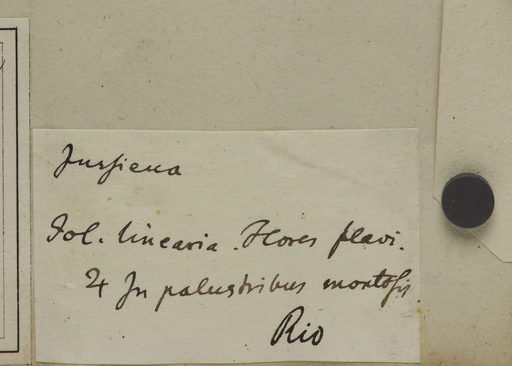 Jussiena
Fol. linearia. Flores flavi.
♃ In palustribus montosis
Rio